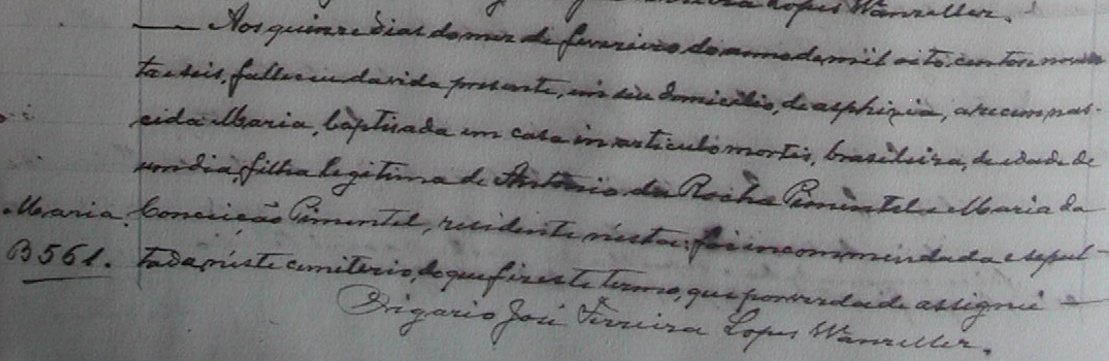 Ferreira Lopes Wanzeller.
— Aos quinze dias do mez de fevereiro do anno de mil oito centos e noven
ta e seis, falleceu da vida presente, em seu domicilio, de asphixia, a recem nas-
cida Maria, baptisada em casa in articulo mortis, brasileira, de edade de
um dia, filha legitima de Antonio da Rocha Pimentel e Maria da
Maria. Conceição Pimentel, residente n'esta: foi incommendada e sepul-
B561. tada n'este cemiterio, do que fiz este termo, que por verdade assignei —
Vigario José Ferreira Lopes Wanzeller.